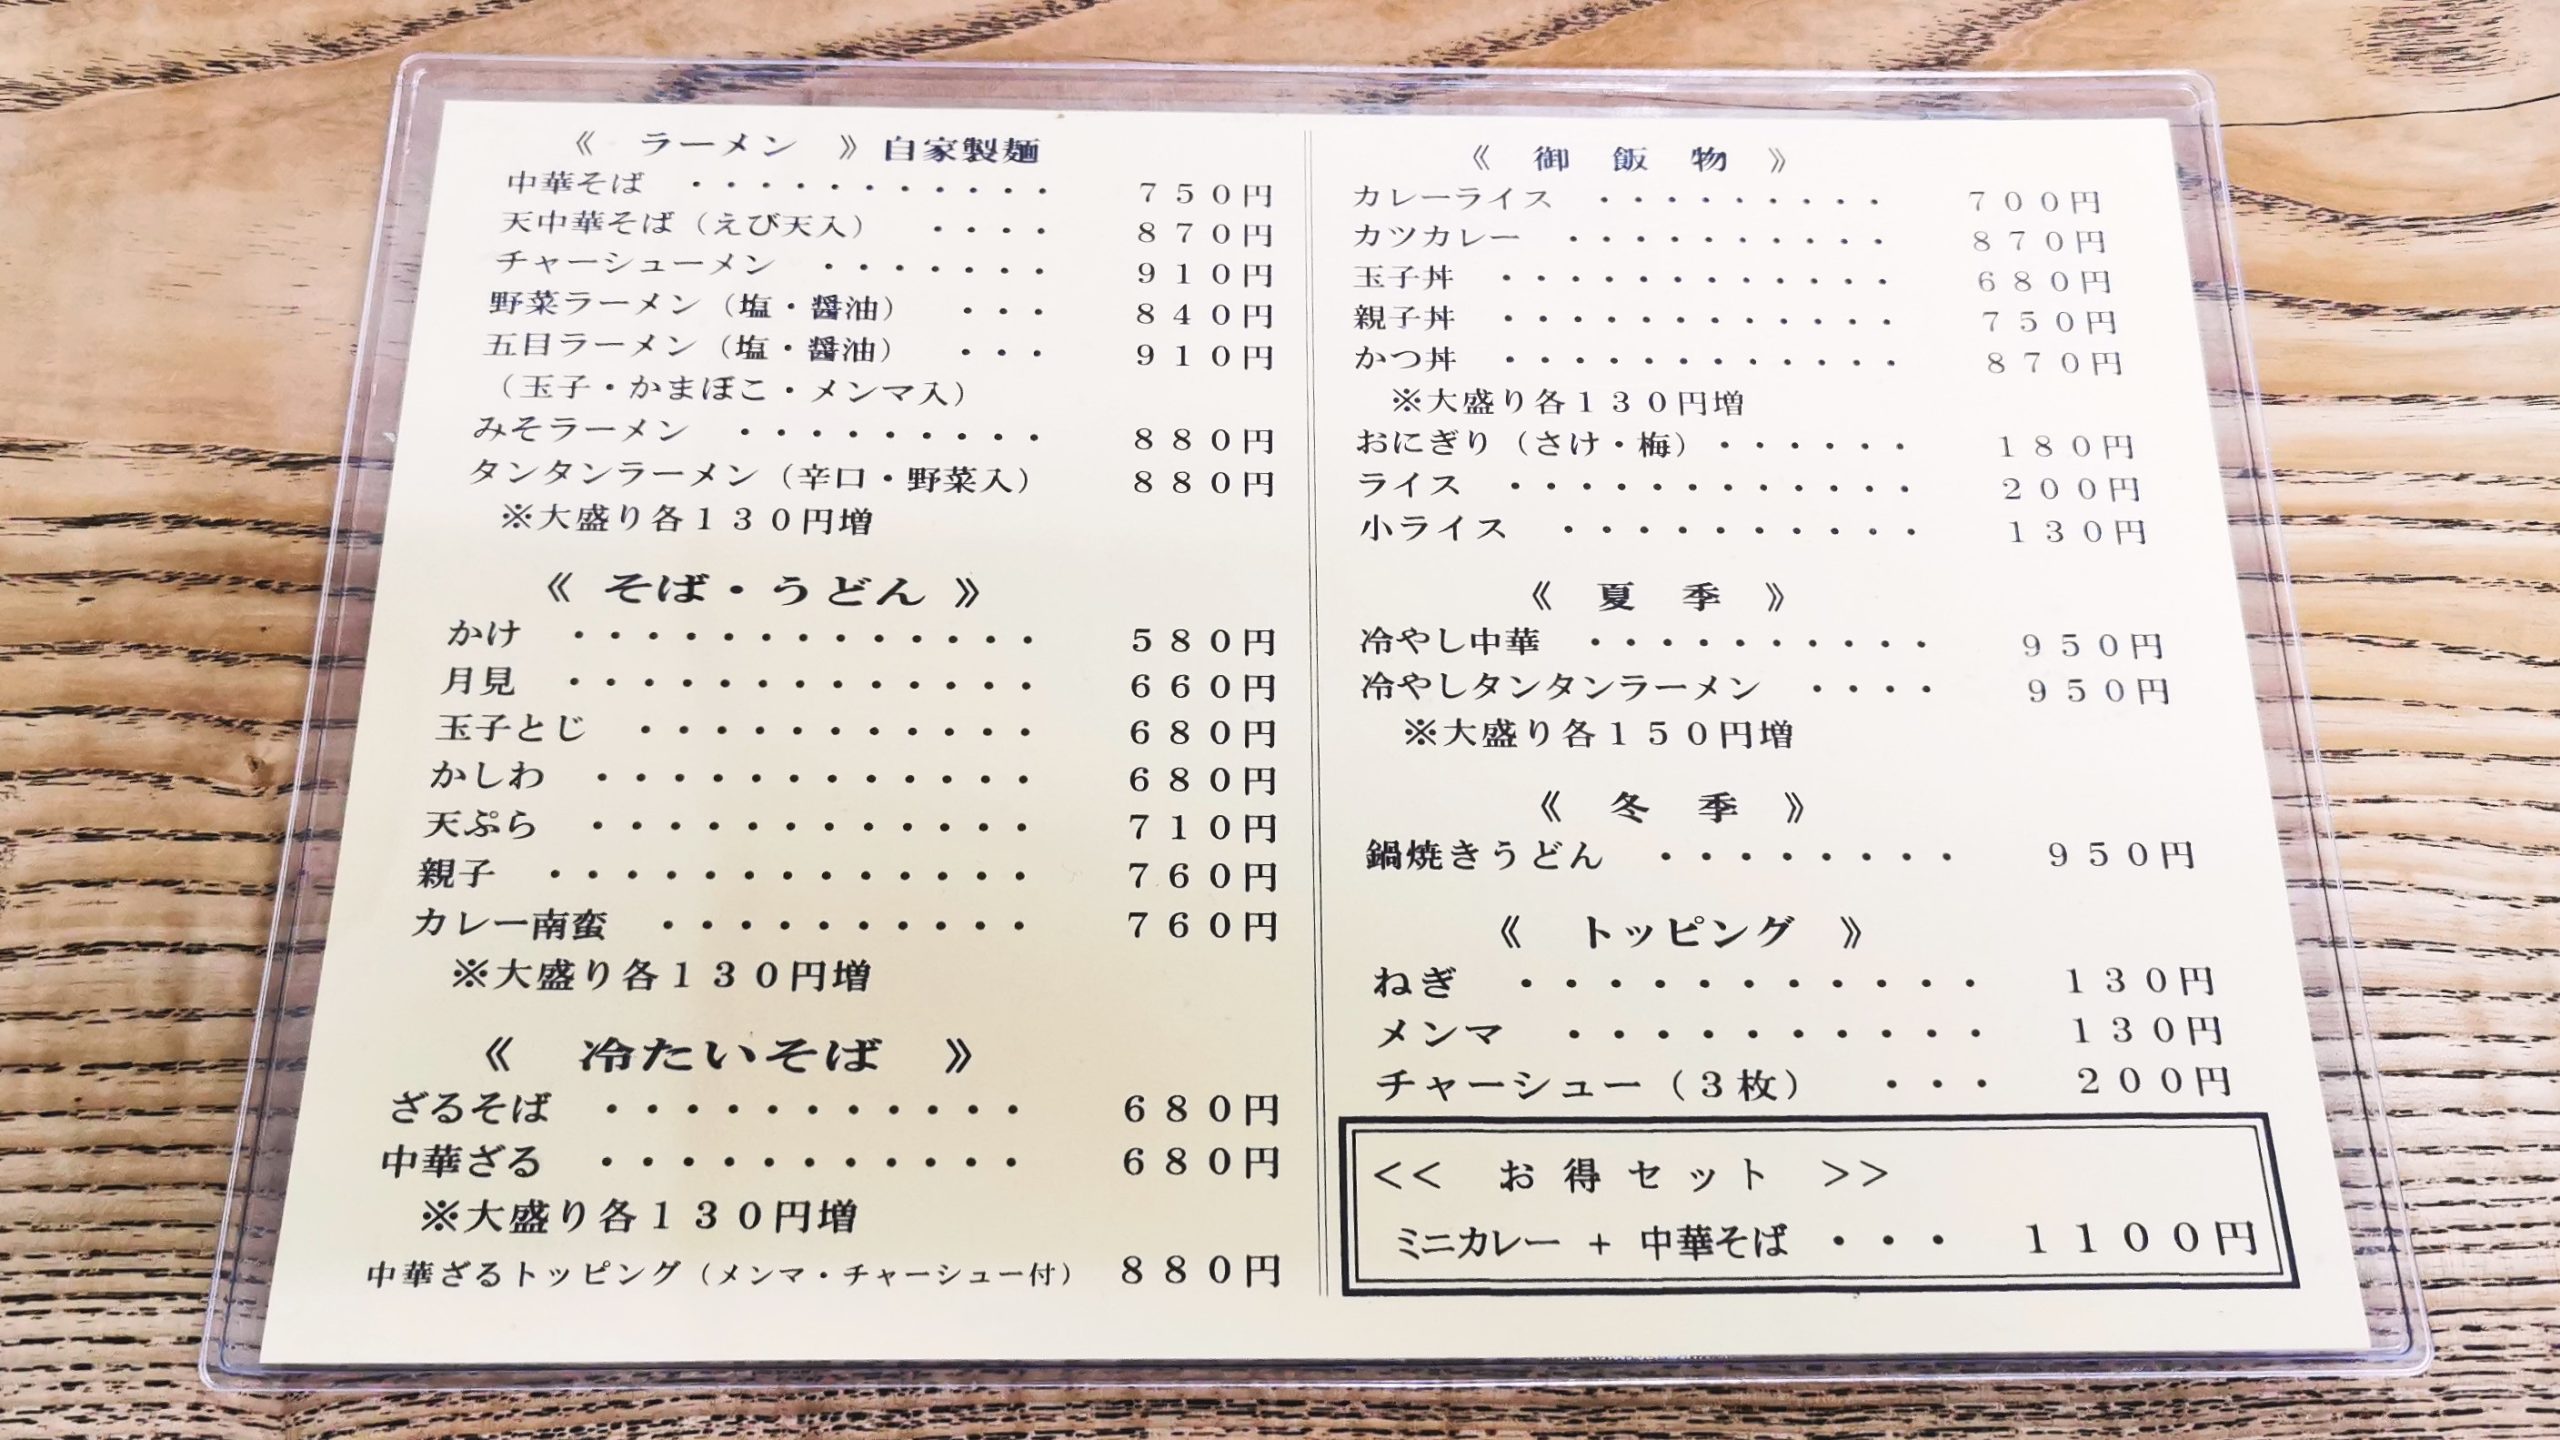 《 ラーメン 》自家製麺
中華そば ・・・・・・・・・・・ 750円
天中華そば（えび天入） ・・・・ 870円
チャーシューメン ・・・・・・・ 910円
野菜ラーメン（塩・醤油） ・・・ 840円
五目ラーメン（塩・醤油） ・・・ 910円
（玉子・かまぼこ・メンマ入）
みそラーメン ・・・・・・・・・ 880円
タンタンラーメン（辛口・野菜入） 880円
※大盛り各130円増
《 そば・うどん 》
かけ ・・・・・・・・・・・・・ 580円
月見 ・・・・・・・・・・・・・ 660円
玉子とじ ・・・・・・・・・・・ 680円
かしわ ・・・・・・・・・・・・ 680円
天ぷら ・・・・・・・・・・・・ 710円
親子 ・・・・・・・・・・・・・ 760円
カレー南蛮 ・・・・・・・・・・ 760円
※大盛り各130円増
《 冷たいそば 》
ざるそば ・・・・・・・・・・・ 680円
中華ざる ・・・・・・・・・・・ 680円
※大盛り各130円増
中華ざるトッピング（メンマ・チャーシュー付） 880円
《 御 飯 物 》
カレーライス ・・・・・・・・・ 700円
カツカレー ・・・・・・・・・・ 870円
玉子丼 ・・・・・・・・・・・・ 680円
親子丼 ・・・・・・・・・・・・ 750円
かつ丼 ・・・・・・・・・・・・ 870円
※大盛り各130円増
おにぎり（さけ・梅）・・・・・・ 180円
ライス ・・・・・・・・・・・・ 200円
小ライス ・・・・・・・・・・ 130円
《 夏 季 》
冷やし中華 ・・・・・・・・・・ 950円
冷やしタンタンラーメン ・・・・ 950円
※大盛り各150円増
《 冬 季 》
鍋焼きうどん ・・・・・・・・ 950円
《 トッピング 》
ねぎ ・・・・・・・・・・・ 130円
メンマ ・・・・・・・・・・ 130円
チャーシュー（3枚） ・・・ 200円
<< お 得 セ ッ ト >>
ミニカレー + 中華そば ・・・ 1100円